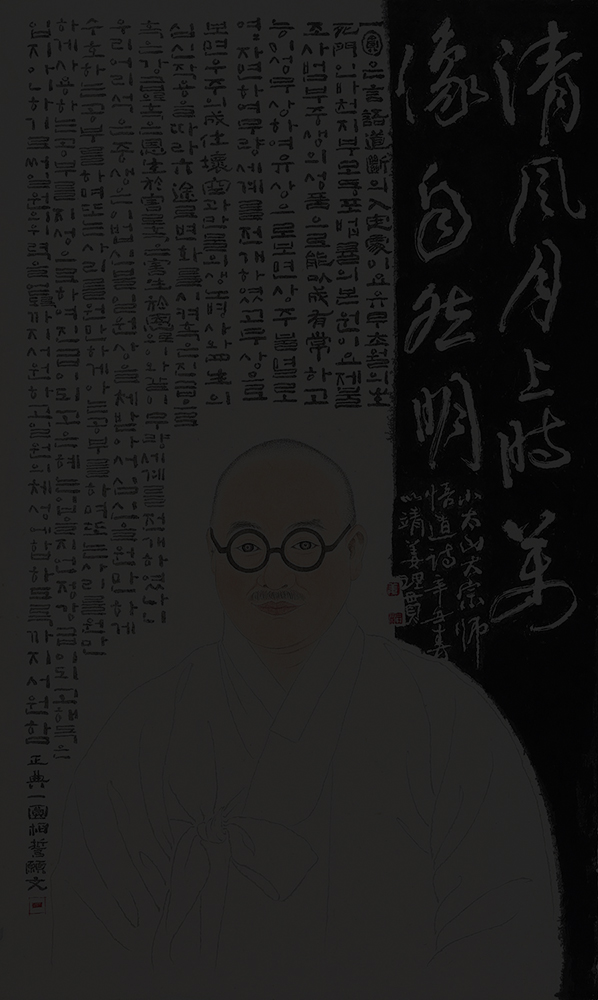 清風月上時萬
像自然明
小太山大宗師
悟道詩
一圓은 言語道斷의 入定處이요 유무초월의 生
死門인바 천지부모동포법률의 본원이요 제불
조사범부중생의 성품으로 能以成有常하고
능이성무상하여 유상으로 보면 상주불멸로
여여자연하여 무량세계를 전개하였고 무상으로
보면 우주의 成住壞空과 만물의 생로병사와 四生의
심신작용을 따라 六途로 변화를 시켜 혹은 진급으로
혹은 강급으로 혹은 恩生於害로 혹은 害生於恩으로 이와 같이 무량세계를 전개하였나니
우리 어리석은 중생은 이 법신불 일원상을 체받아서 심신을 원만하게
수호하는 공부를 하며 또는 사리를 원만하게 아는 공부를 하며 또는 심신을 원만
하게 사용하는 공부를 지성으로 하여 진급이 되고 은혜는 입을지언정 강급이 되고 해독은
입지 아니하기로써 일원의 위력을 얻도록까지 서원하고 일원의 체성에 합하도록까지 서원함 正典一圓相誓願文